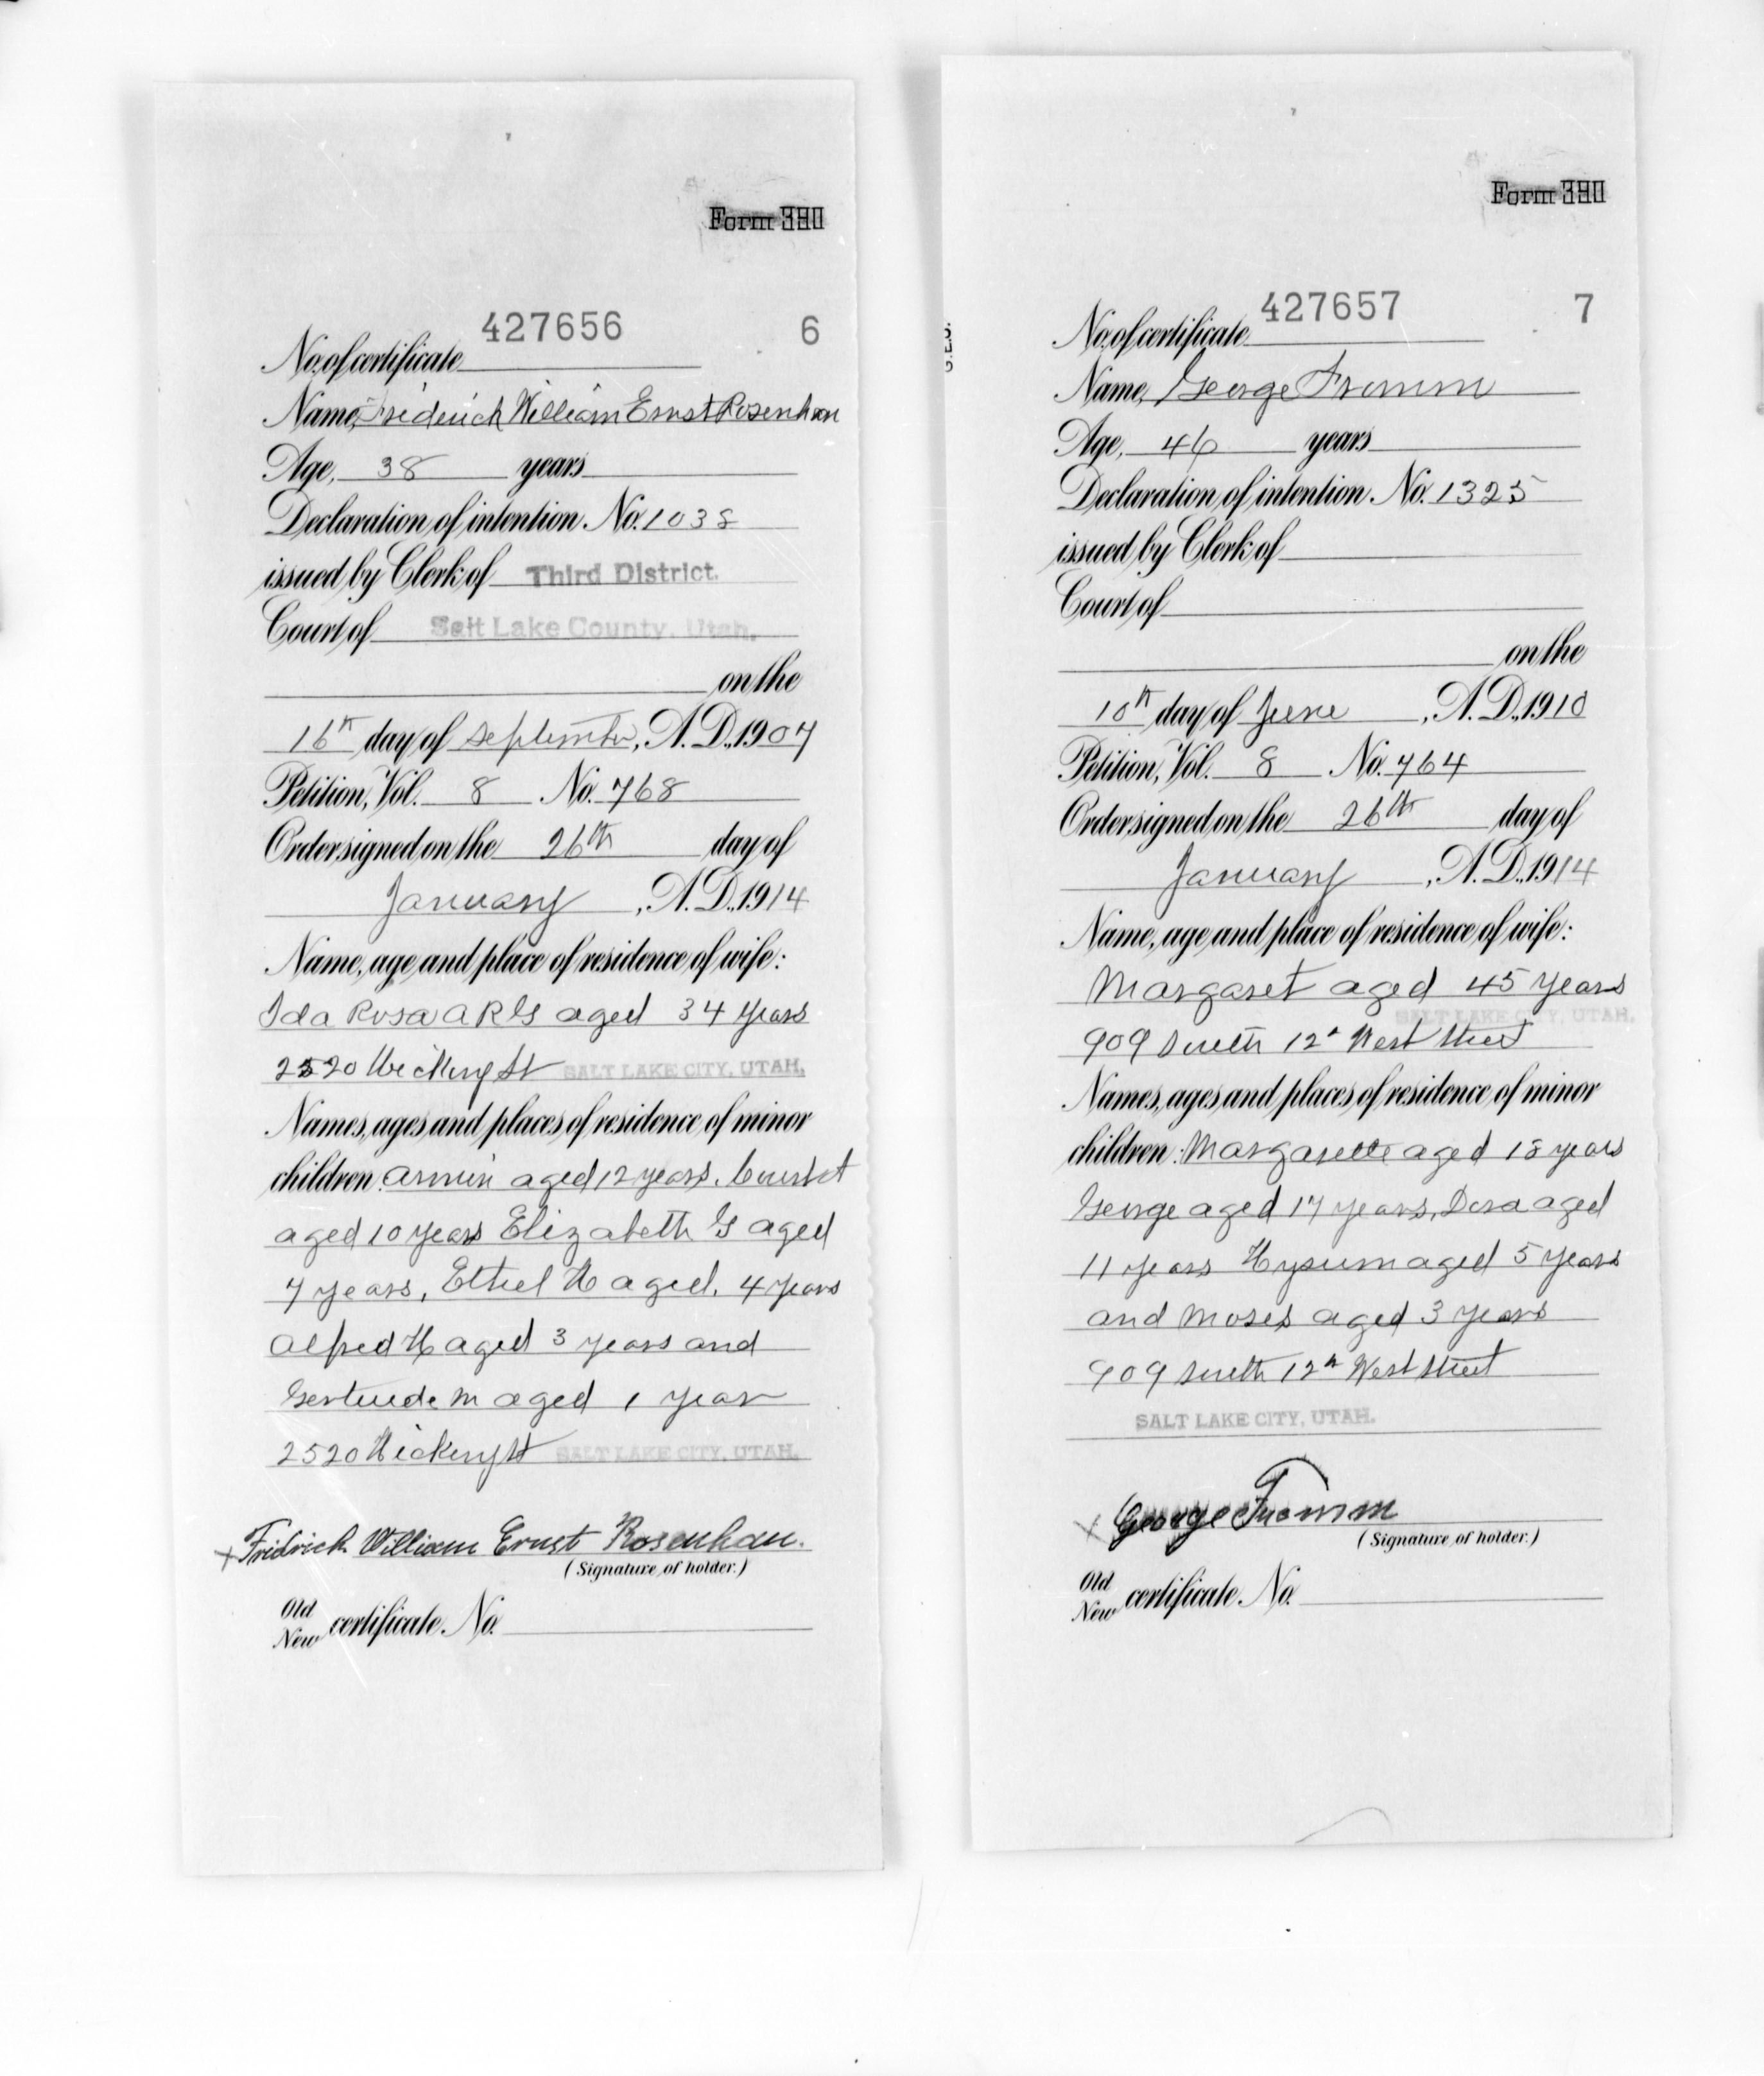 Form 330
427656 6
No. of certificate
Name, Friderich William Ernst Rosenhan
Age, 38 years
Declaration of intention No. 1038
issued by Clerk of Third District.
Court of Salt Lake County, Utah.
on the
16th day of September, A.D., 1907
Petition, Vol. 8 No. 768
Order signed on the 26th day of
January, A.D., 1914
Name, age and place of residence of wife:
Ida Rosa A R G aged 34 years
2520 St SALT LAKE CITY, UTAH.
Names, ages and places of residence of minor
children: Armin aged 12 years,
aged 10 years Elizabeth G aged
7 years, Ethel H aged, 4 years
Alfred H aged 3 years and
Gertrude M aged 1 year
2520 Hickory St SALT LAKE CITY, UTAH.
x Fridrich William Ernst Rosenhan.
(Signature of holder.)
Old
New certificate No.
Form 330
427657 7
No. of certificate
Name, George Fromm
Age, 46 years
Declaration of intention No. 1325
issued by Clerk of
Court of
on the
10th day of June, A.D., 1910
Petition, Vol. 8 No. 764
Order signed on the 26th day of
January, A.D., 1914
Name, age and place of residence of wife:
Margaret aged 45 years
SALT LAKE CITY, UTAH.
909 South 12th West Street
Names, ages and places of residence of minor
children: Margarette aged 18 years
George aged 17 years, Dora aged
11 years Hyrum aged 5 years
and Moses aged 3 years
909 South 12th West Street
SALT LAKE CITY, UTAH.
x George Fromm
(Signature of holder.)
Old
New certificate No.